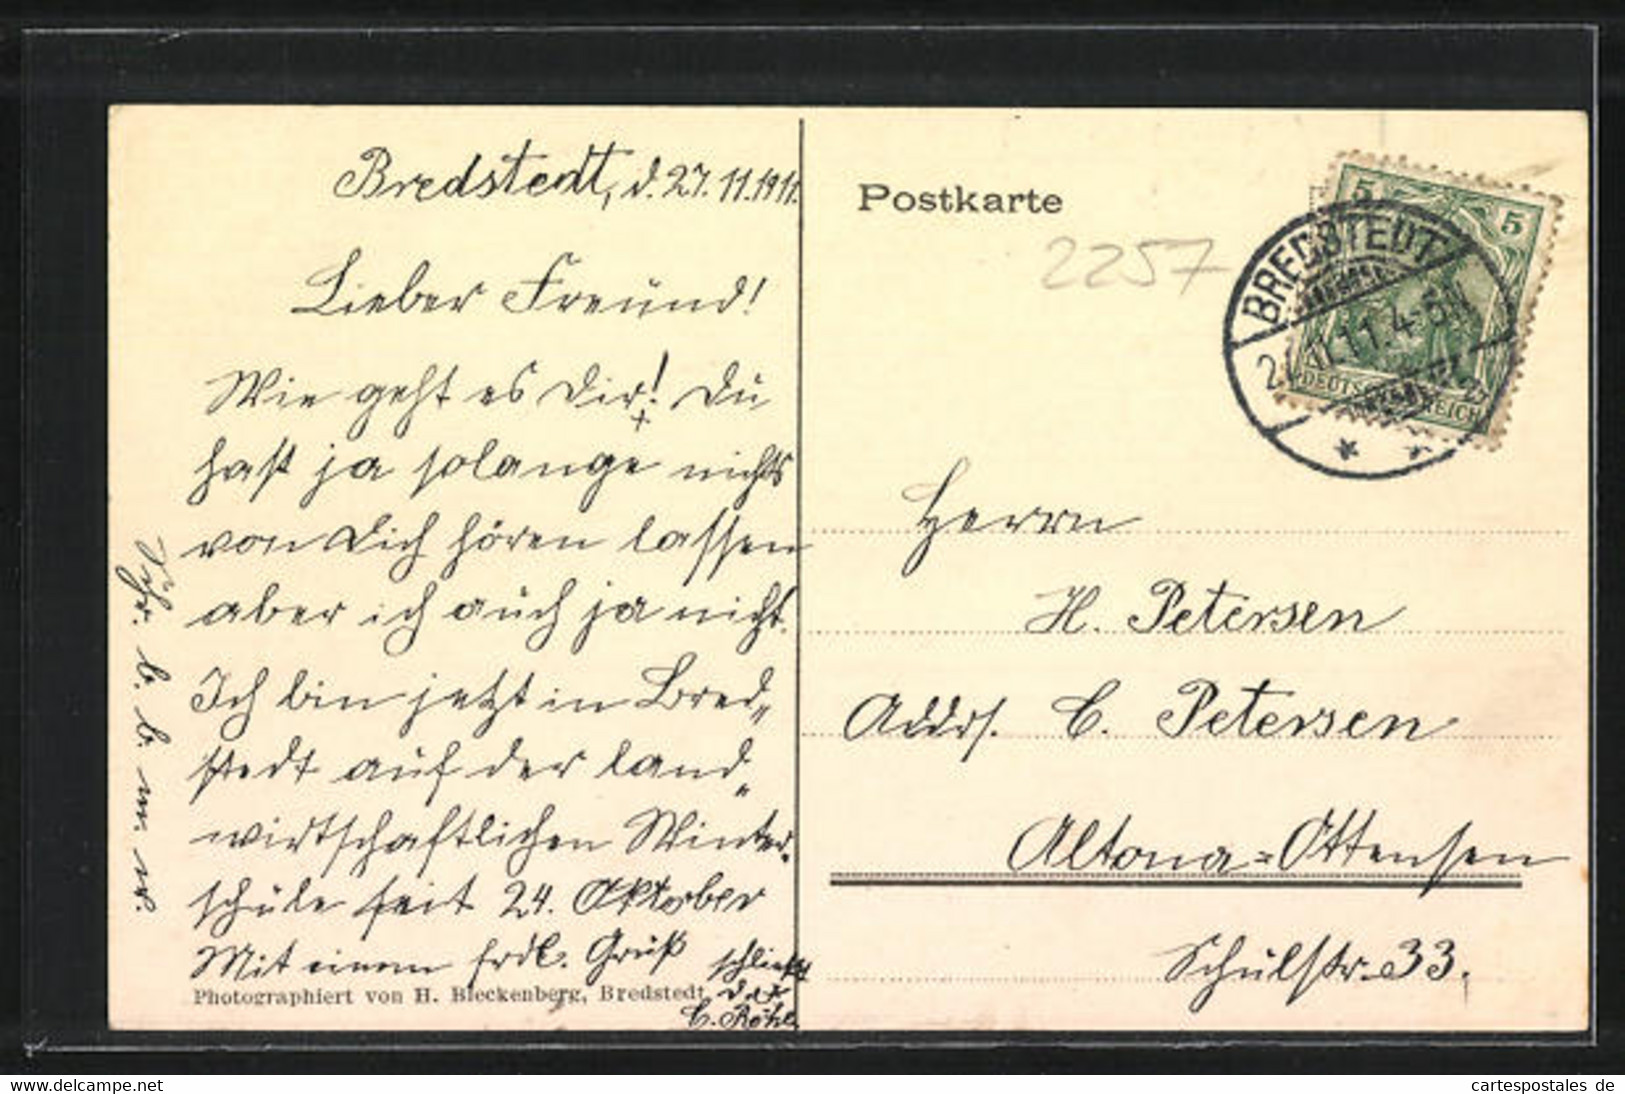 Bredstedt, d. 27.11.1911.
Lieber Freund!
Wie geht es Dir! Du
hast ja solange nichts
von Dich hören lassen
aber ich auch ja nicht.
Ich bin jetzt in Bred„
stedt auf der land„
wirtschaftlichen Winter-
schule seit 24. Oktober
Mit einem frdl. Gruß schließt
Photographiert von H. Bleckenberg, Bredstedt
C. Röhl
b. b. m. w.
Postkarte
2257
5 5
BREDSTEDT
11.11.4-5N
DEUTSCHES REICH
Herrn
H. Petersen
Addrs. C. Petersen
Altona=Ottensen
Schulstr. 33.
www.delcampe.net
cartespostales de